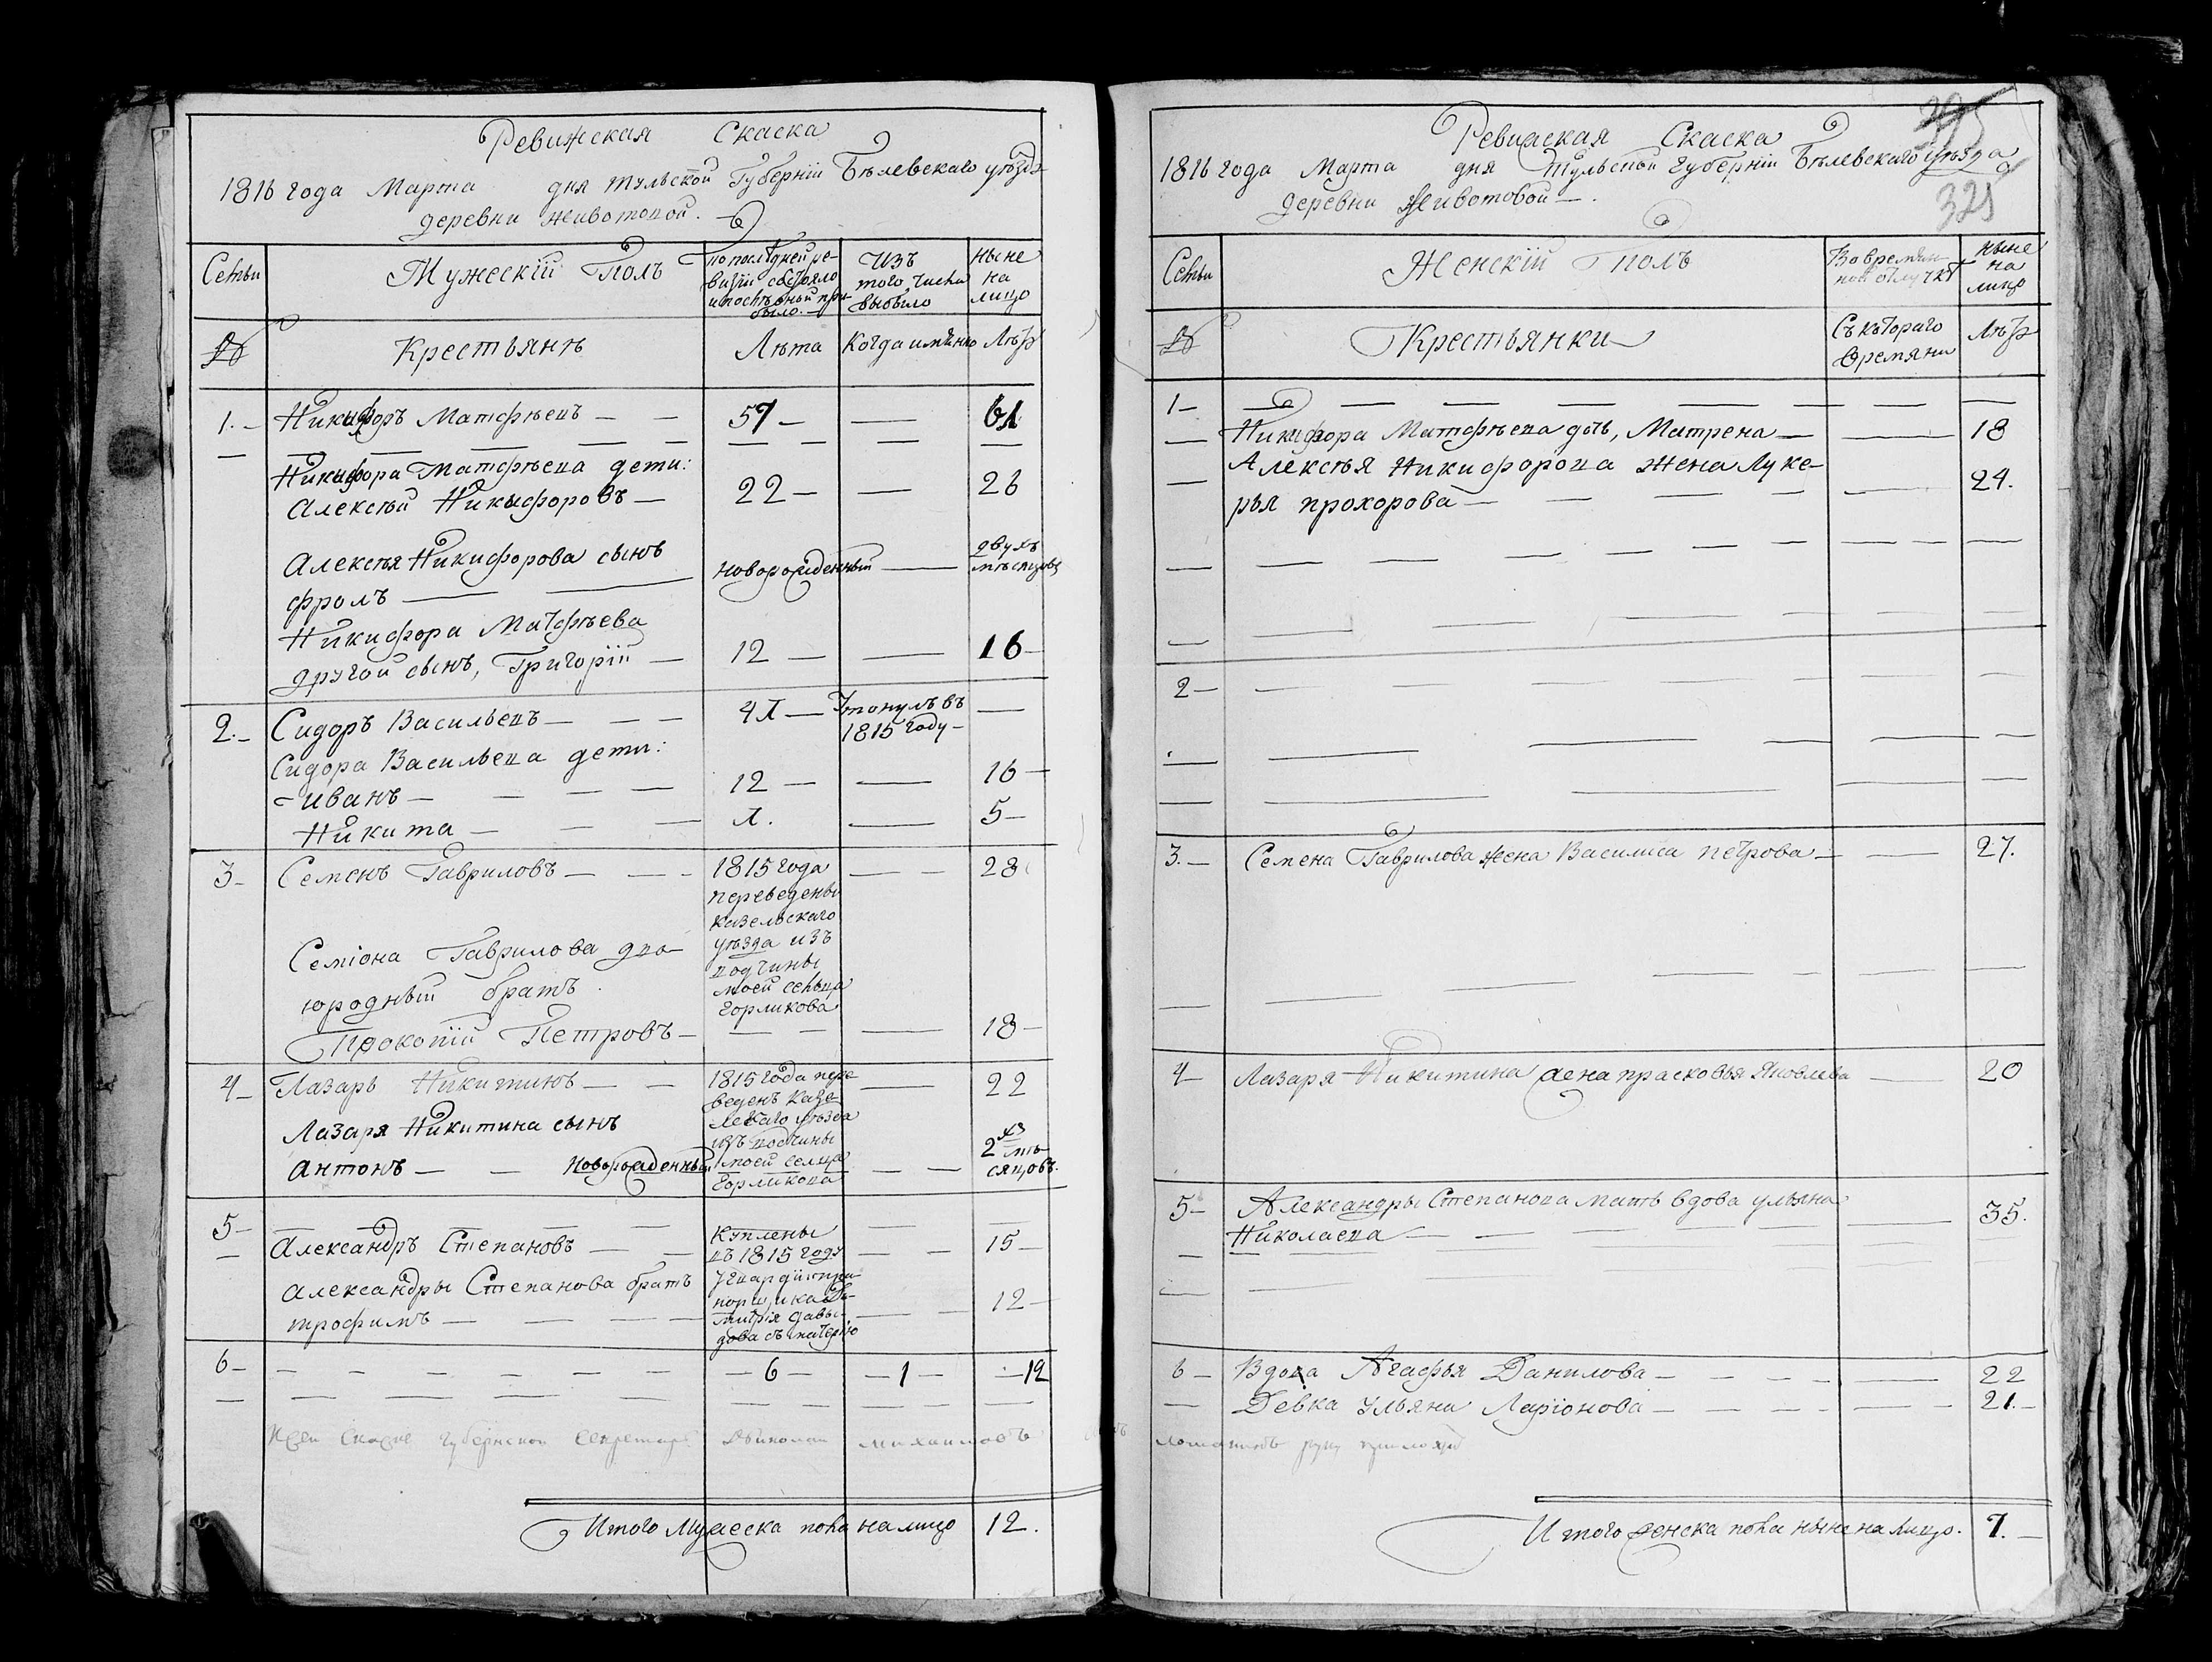 Ревижская Скаска
1816 года Марта дня Тульской Губерніи Бѣлевскаго уѣзда
деревни Животовой.
Семьи
Мужескій Полъ
по последней ре-
визіи состояло
и после оной при-
было.
Изъ
того числа
выбыло
Ныне
на
лицо
№
Крестьяне
Лѣта
Когда имянно
Лѣта
1.
Никифоръ Матфѣевъ
57
61
Никифора Матфѣева дети:
Алексѣй Никифоровъ
22
26
Алексѣя Никифорова сынъ
фролъ
новорожденный
двухъ
мѣсяцовъ
Никифора Матфѣева
другой сынъ, Григорій
12
16
2.
Сидоръ Васильевъ
41
Утонулъ въ
1815 году
Сидора Васильева дети:
иванъ
12
16
Никита
1.
5
3
Семенъ Гавриловъ
1815 года
переведены
Казельскаго
уѣзда изъ
вотчины
моей сельца
Горликова
28
Семіона Гаврилова дво-
юродный братъ
Прокопій Петровъ
18
4
Лазарь Никитинъ
1815 года пере
веденъ Казе-
льскаго уѣзда
изъ вотчины
моей селца
Горликова
22
Лазаря Никитина сынъ
антонъ
новорожденный
2хъ мѣ-
сяцовъ.
5
Александръ Степановъ
Куплены
въ 1815 году
у гвардіи пра-
порщика Ди-
митрія Давы-
дова съ матерью
15
александры Степанова братъ
трофимъ
12
6
6
1
12
Губернской Секретарь
Михаиловъ
Итого Мужеска пола на лицо
12.
Ревижская Скаска
1816 года Марта дня Тульской Губерніи Бѣлевскаго уѣзда
деревни Животовой
325
Семьи
Женскій полъ
Во времян-
ной отлучкѣ
Ныне
на
лицо
№
Крестьянки
Съ котораго
времяни
Лѣта
1
Никифора Матфѣева дочь, Матрена
18
Алексѣя Никифорова жена Луке-
рья прохорова
24.
2
3.
Семена Гаврилова жена Василиса петрова
27.
4
Лазаря Никитина жена прасковья Яковлева
20
5
Александры Степанова мать вдова ульяна
Николаева
35.
6
Вдова Агафья Данилова
22
Девка Ульяна Ларіонова
21.
руку приложилъ
Итого женска пола ныне на лицо.
7.